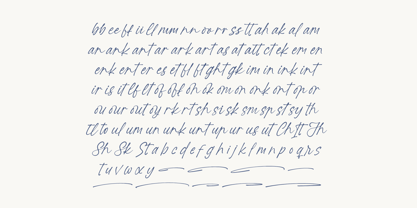 bb ee ff ii ll mm nn oo rr ss tt ah ak al am
an ank ant ar ark art as at att ct ek em en
enk ent er es et fl ft ght gk im in ink int
ir is it lf lt of ofl oh ok om on onk ont op or
ou our out oy rk rt sh si sk sm sp st sy th
tl to ul um un unk unt up ur us ut Ch It Th
Sh Sk St a b c d e f g h i j k l m n p o q r s
t u v w x y